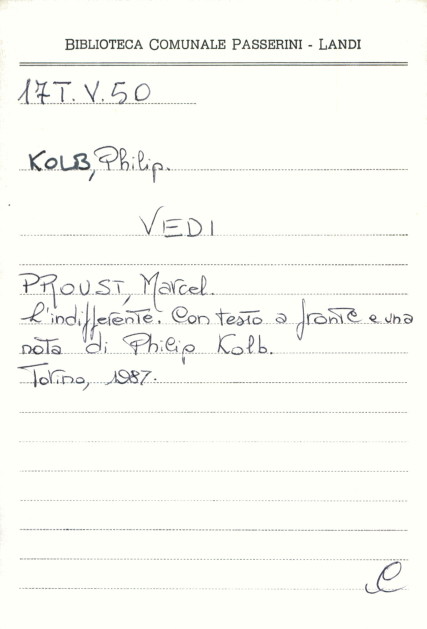 BIBLIOTECA COMUNALE PASSERINI - LANDI
17T.V.50
KOLB, Philip.
VEDI
PROUST, Marcel.
L'indifferente. Con testo a fronte e una
nota di Philip Kolb.
Torino, 1987.